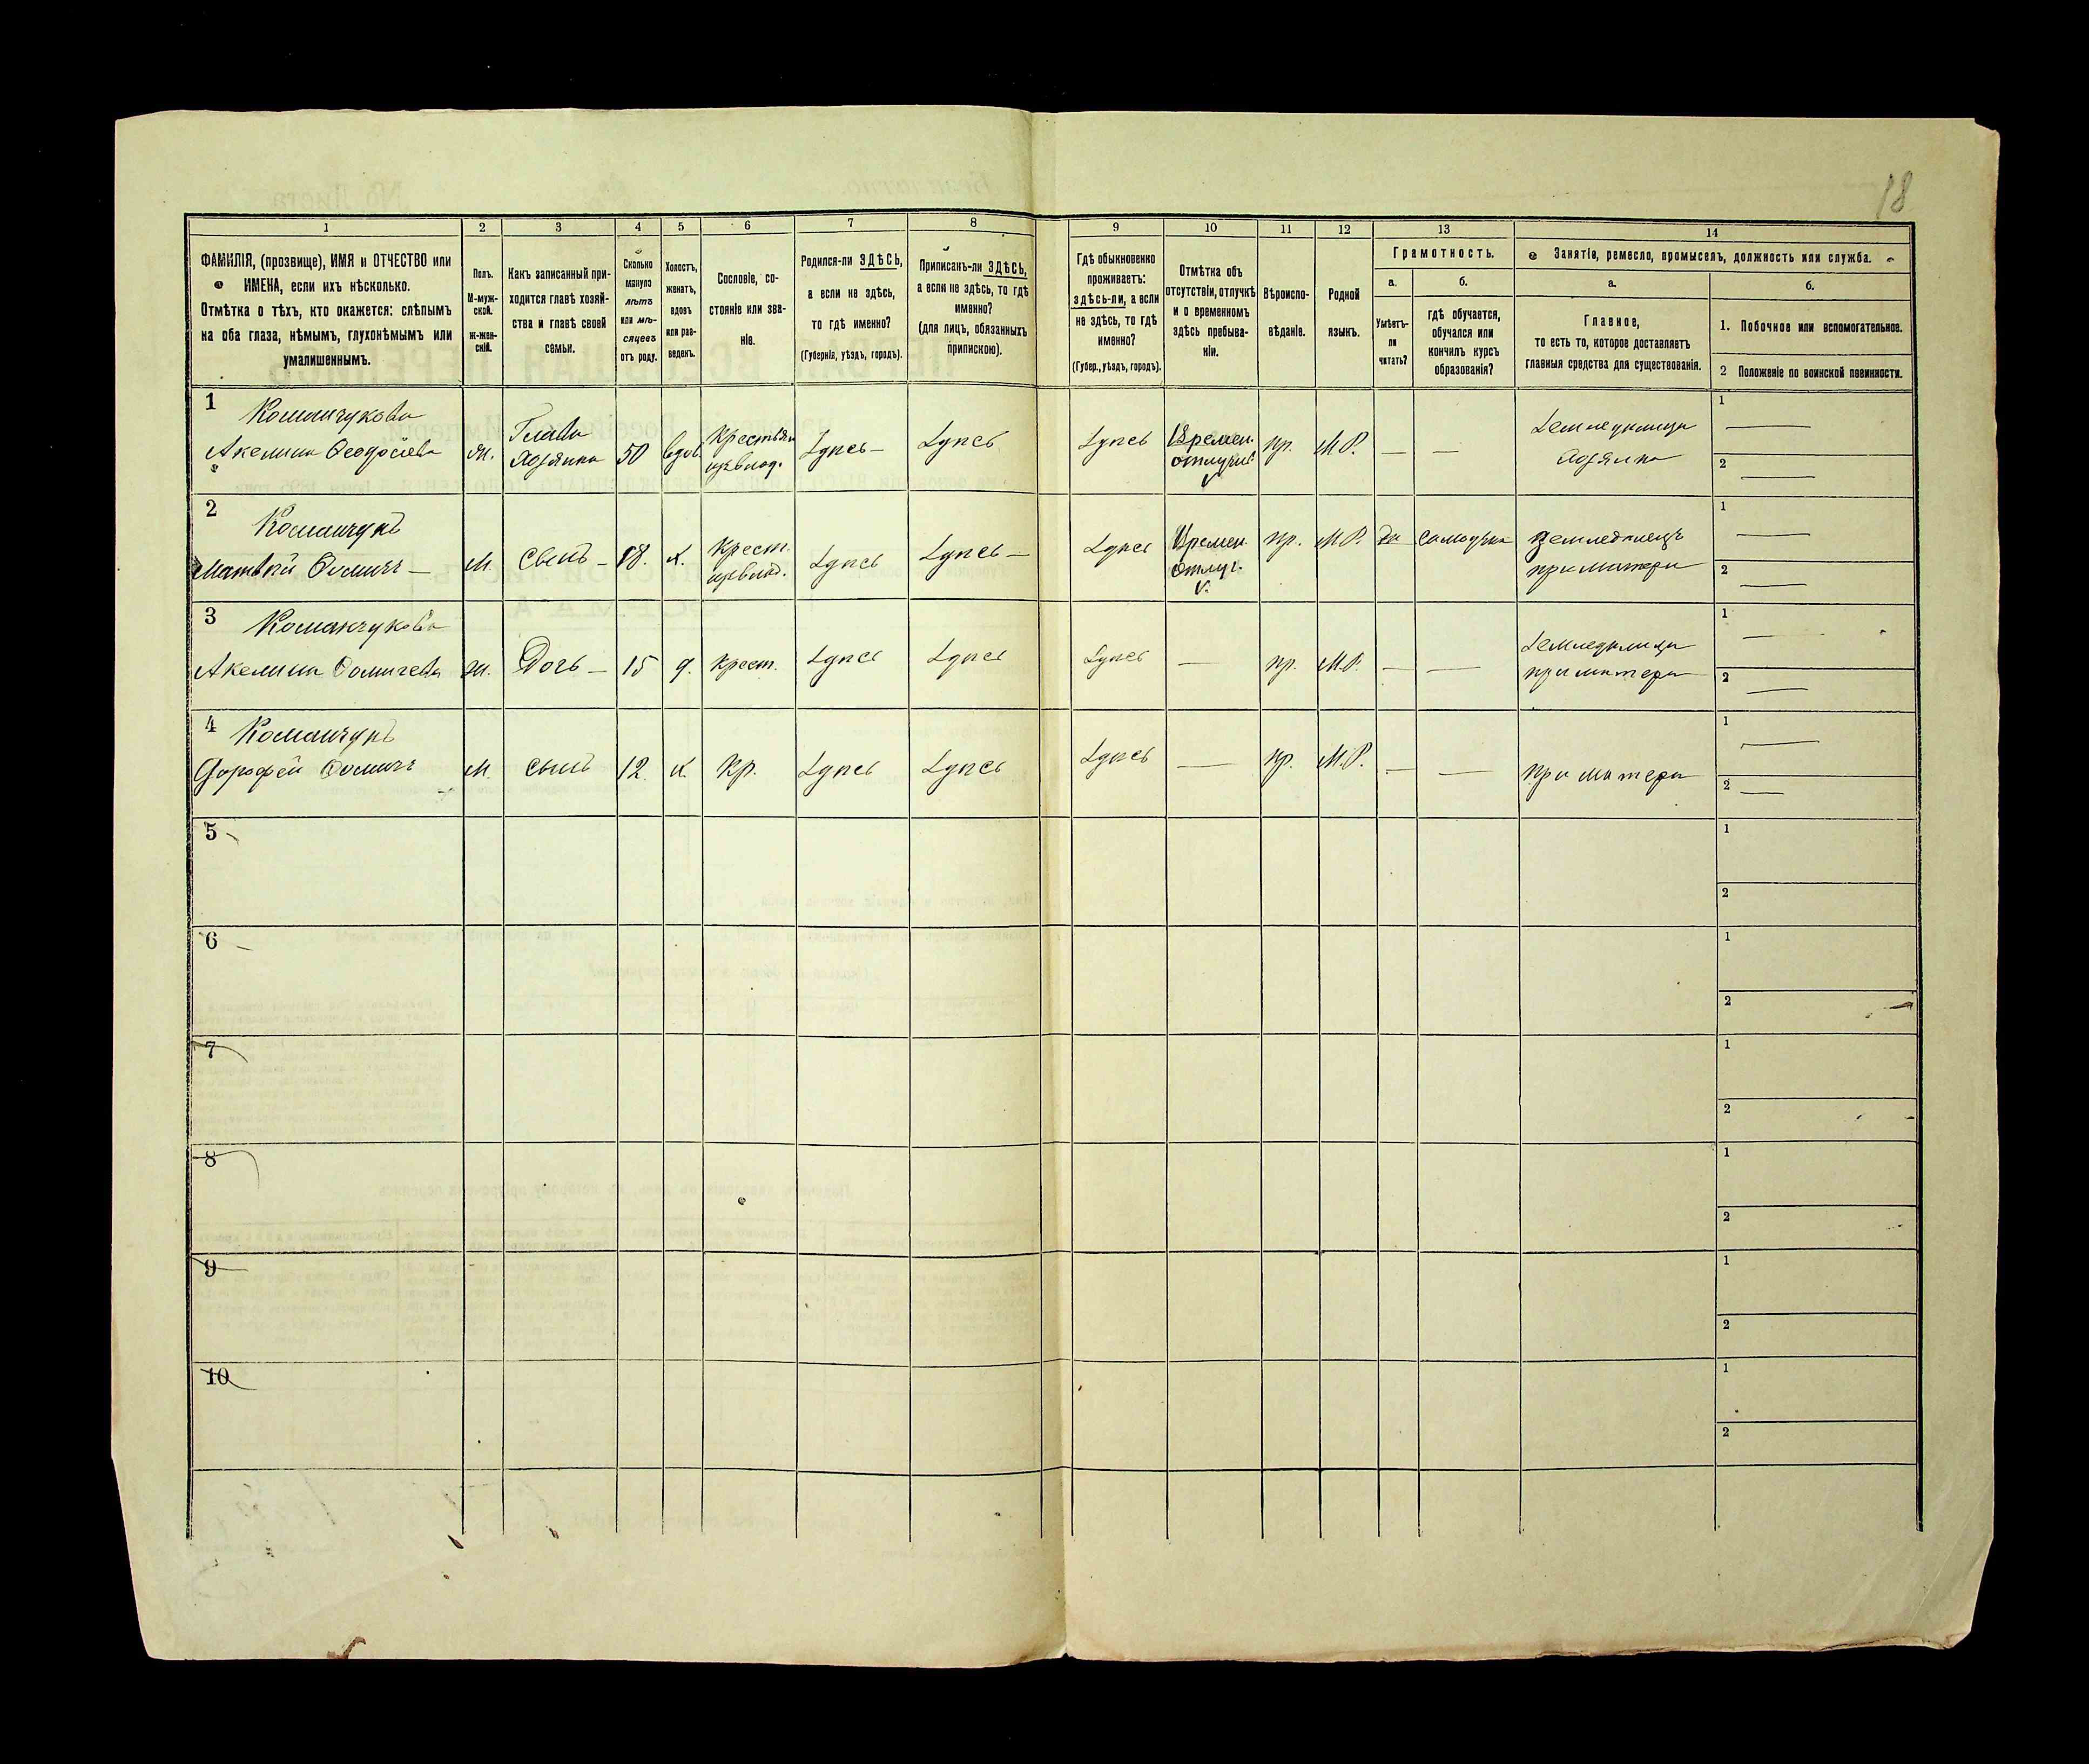 18
1
2
3
4
5
6
7
8
9
10
11
12
13
14
ФАМИЛІЯ, (прозвище), ИМЯ и ОТЧЕСТВО или
ИМЕНА, если ихъ нѣсколько.
Отмѣтка о тѣхъ, кто окажется: слѣпымъ
на оба глаза, нѣмымъ, глухонѣмымъ или
умалишеннымъ.
Полъ.
М-муж-
ской.
Ж-жен-
скій.
Какъ записанный при-
ходится главѣ хозяй-
ства и главѣ своей
семьи.
Сколько
минуло
лѣтъ
или мѣ-
сяцевъ
отъ роду.
Холостъ,
женатъ,
вдовъ
или раз-
веденъ.
Сословіе, со-
стояніе или зва-
ніе.
Родился-ли ЗДѢСЬ,
а если не здѣсь,
то гдѣ именно?
(Губернія, уѣздъ, городъ).
Приписанъ-ли ЗДѢСЬ,
а если не здѣсь, то гдѣ
именно?
(для лицъ, обязанныхъ
припискою).
Гдѣ обыкновенно
проживаетъ:
здѣсь-ли, а если
не здѣсь, то гдѣ
именно?
(Губер., уѣздъ, городъ).
Отмѣтка объ
отсутствіи, отлучкѣ
и о временномъ
здѣсь пребыва-
ніи.
Вѣроиспо-
вѣданіе.
Родной
языкъ.
Грамотность.
а.
Умѣетъ-
ли
читать?
б.
гдѣ обучается,
обучался или
кончилъ курсъ
образованія?
Занятіе, ремесло, промыселъ, должность или служба.
а.
Главное,
то есть то, которое доставляетъ
главныя средства для существованія.
б.
1. Побочное или вспомогательное.
2 Положеніе по воинской повинности.
1
Романчукова
Акелина Ѳеодосіева
ж.
Глава
Хозяйка
50
вдов.
Крестьян.
изъ влад.
Здѣсь
Здѣсь
Здѣсь
Времен.
отлуч.
пр.
М.Р.
—
—
Земледѣлица
хозяйка
1
2
2
Романчукъ
Матвѣй Ѳомичъ
м.
Сынъ
18.
х.
Крест.
изъ влад.
Здѣсь
Здѣсь
Здѣсь
Времен.
отлуч.
пр.
М.Р.
да
самоучка
земледѣлецъ
при матери
1
2
3
Романчукова
Акелина Ѳомичева
ж.
Дочь
15
д.
Крест.
Здѣсь
Здѣсь
Здѣсь
—
пр.
М.Р.
—
—
Земледѣлица
при матери
1
2
4
Романчукъ
Дорофей Ѳомичъ
м.
сынъ
12.
х.
Кр.
Здѣсь
Здѣсь
Здѣсь
—
пр.
М.Р.
—
—
при матери
1
2
5
1
2
6
1
2
7
1
2
8
1
2
9
1
2
10
1
2